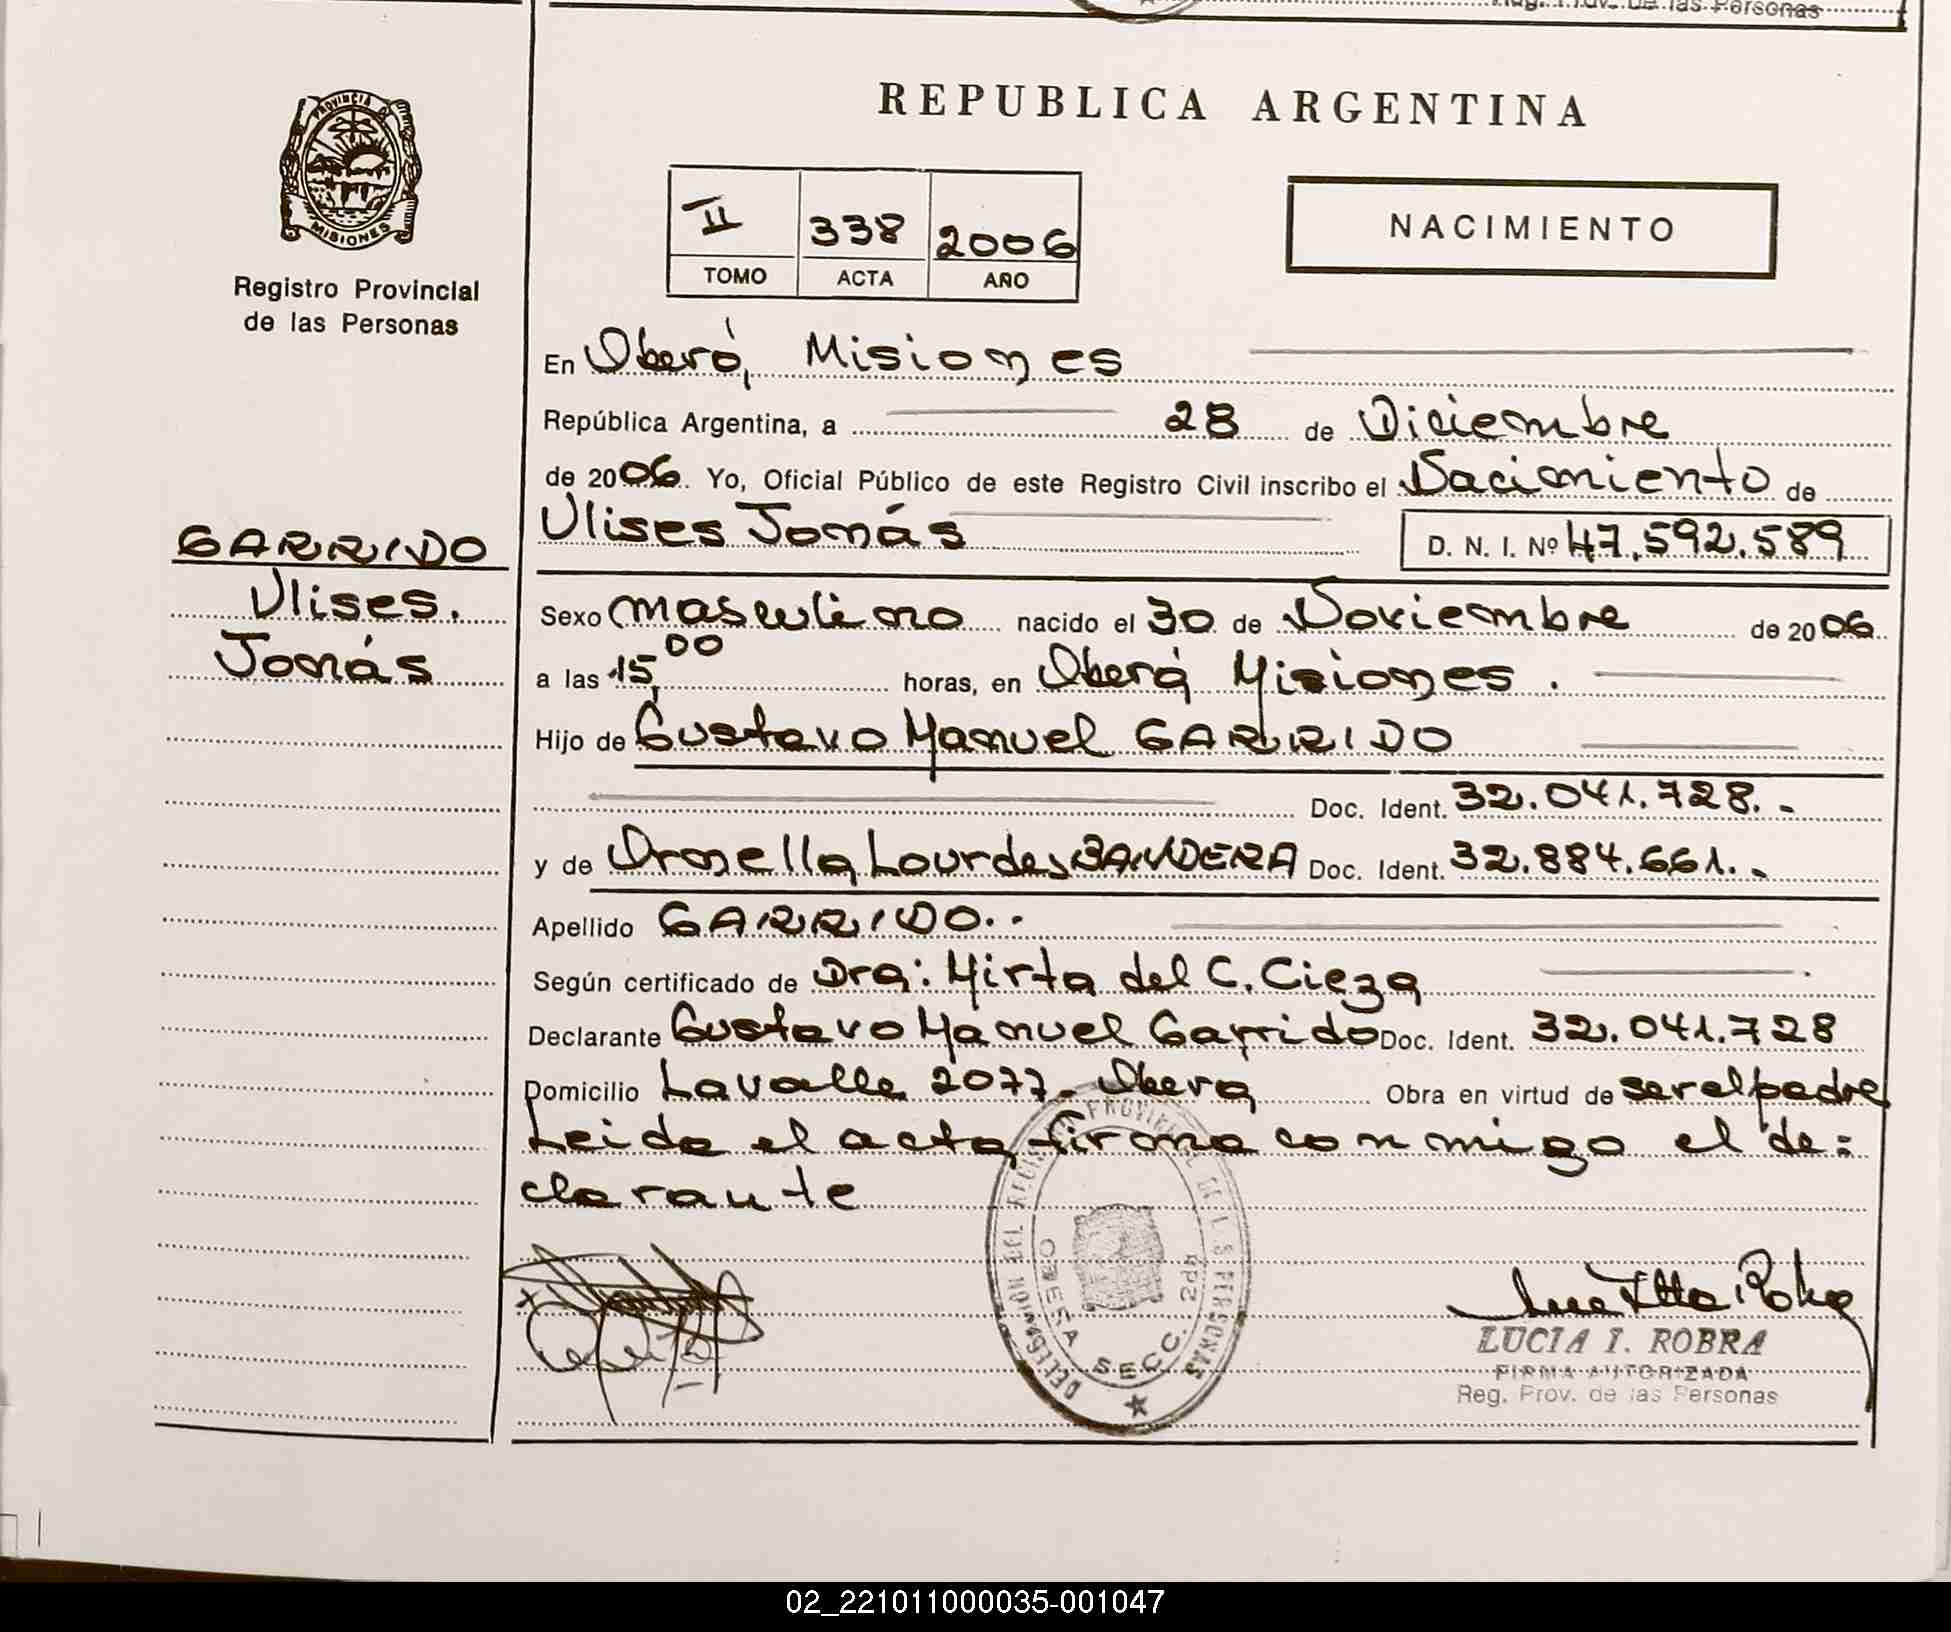 Reg. Prov. de las Personas
PROVINCIA DE
MISIONES
Registro Provincial
de las Personas
REPUBLICA ARGENTINA
II 338 2006
TOMO ACTA AÑO
NACIMIENTO
En Oberá, Misiones
República Argentina, a 28 de Diciembre
de 2006. Yo, Oficial Público de este Registro Civil inscribo el Nacimiento de
Ulises Jonás D. N. I. Nº 47.592.589
GARRIDO
Ulises.
Jonás
Sexo masculino nacido el 30 de Noviembre de 2006
a las 15,00 horas, en Oberá Misiones.
Hijo de Gustavo Manuel GARRIDO
Doc. Ident. 32.041.728.-
y de Ornella Lourdes BANDERA Doc. Ident. 32.884.661.-
Apellido GARRIDO..
Según certificado de Dra: Mirta del C. Cieza
Declarante Gustavo Manuel Garrido Doc. Ident. 32.041.728
Domicilio Lavalle 2077- Obera Obra en virtud de ser el padre
Leida el acta firma conmigo el de=
clarante
DELEGACION DEL REGISTRO PROVINCIAL DE LAS PERSONAS
OBERA SECC. 2da
LUCIA I. ROBRA
FIRMA AUTORIZADA
Reg. Prov. de las Personas
02_221011000035-001047